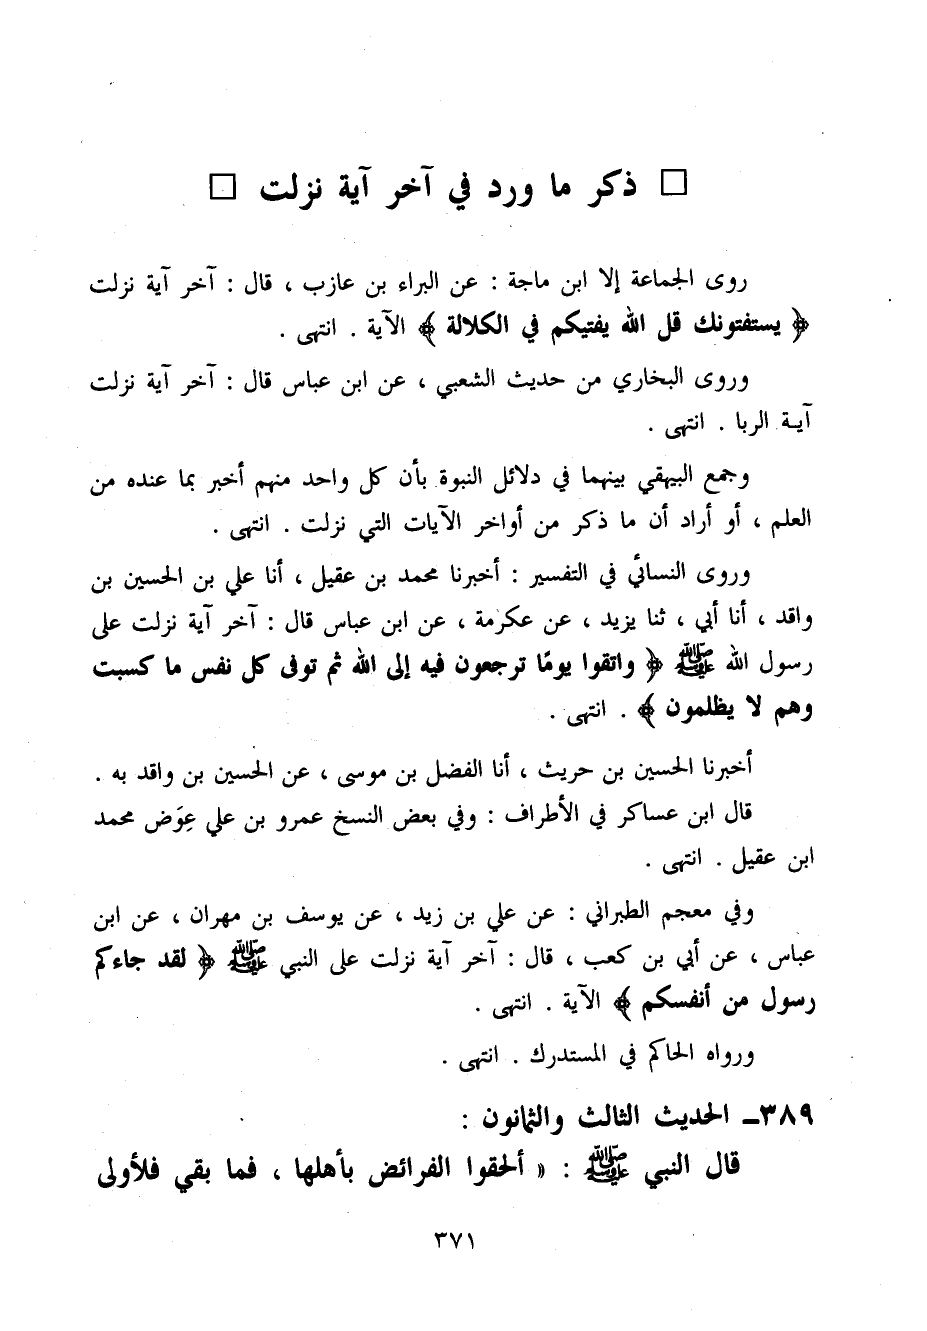 □ ذكر ما ورد في آخر آية نزلت □
روى الجماعة إلا ابن ماجة : عن البراء بن عازب ، قال : آخر آية نزلت
﴿ يستفتونك قل الله يفتيكم في الكلالة ﴾ الآية . انتهى .
وروى البخاري من حديث الشعبي ، عن ابن عباس قال : آخر آية نزلت
آية الربا . انتهى .
وجمع البيهقي بينهما في دلائل النبوة بأن كل واحد منهم أخبر بما عنده من
العلم ، أو أراد أن ما ذكر من أواخر الآيات التي نزلت . انتهى .
وروى النسائي في التفسير : أخبرنا محمد بن عقيل ، أنا علي بن الحسين بن
واقد ، أنا أبي ، ثنا يزيد ، عن عكرمة ، عن ابن عباس قال : آخر آية نزلت على
رسول الله ﷺ ﴿ واتقوا يومًا ترجعون فيه إلى الله ثم توفى كل نفس ما كسبت
وهم لا يظلمون ﴾ . انتهى .
أخبرنا الحسين بن حريث ، أنا الفضل بن موسى ، عن الحسين بن واقد به .
قال ابن عساكر في الأطراف : وفي بعض النسخ عمرو بن علي عِوَض محمد
ابن عقيل . انتهى .
وفي معجم الطبراني : عن علي بن زيد ، عن يوسف بن مهران ، عن ابن
عباس ، عن أبي بن كعب ، قال : آخر آية نزلت على النبي ﷺ ﴿ لقد جاءكم
رسول من أنفسكم ﴾ الآية . انتهى .
ورواه الحاكم في المستدرك . انتهى .
٣٨٩ـ الحديث الثالث والثمانون :
قال النبي ﷺ : « ألحقوا الفرائض بأهلها ، فما بقي فلأولى
٣٧١